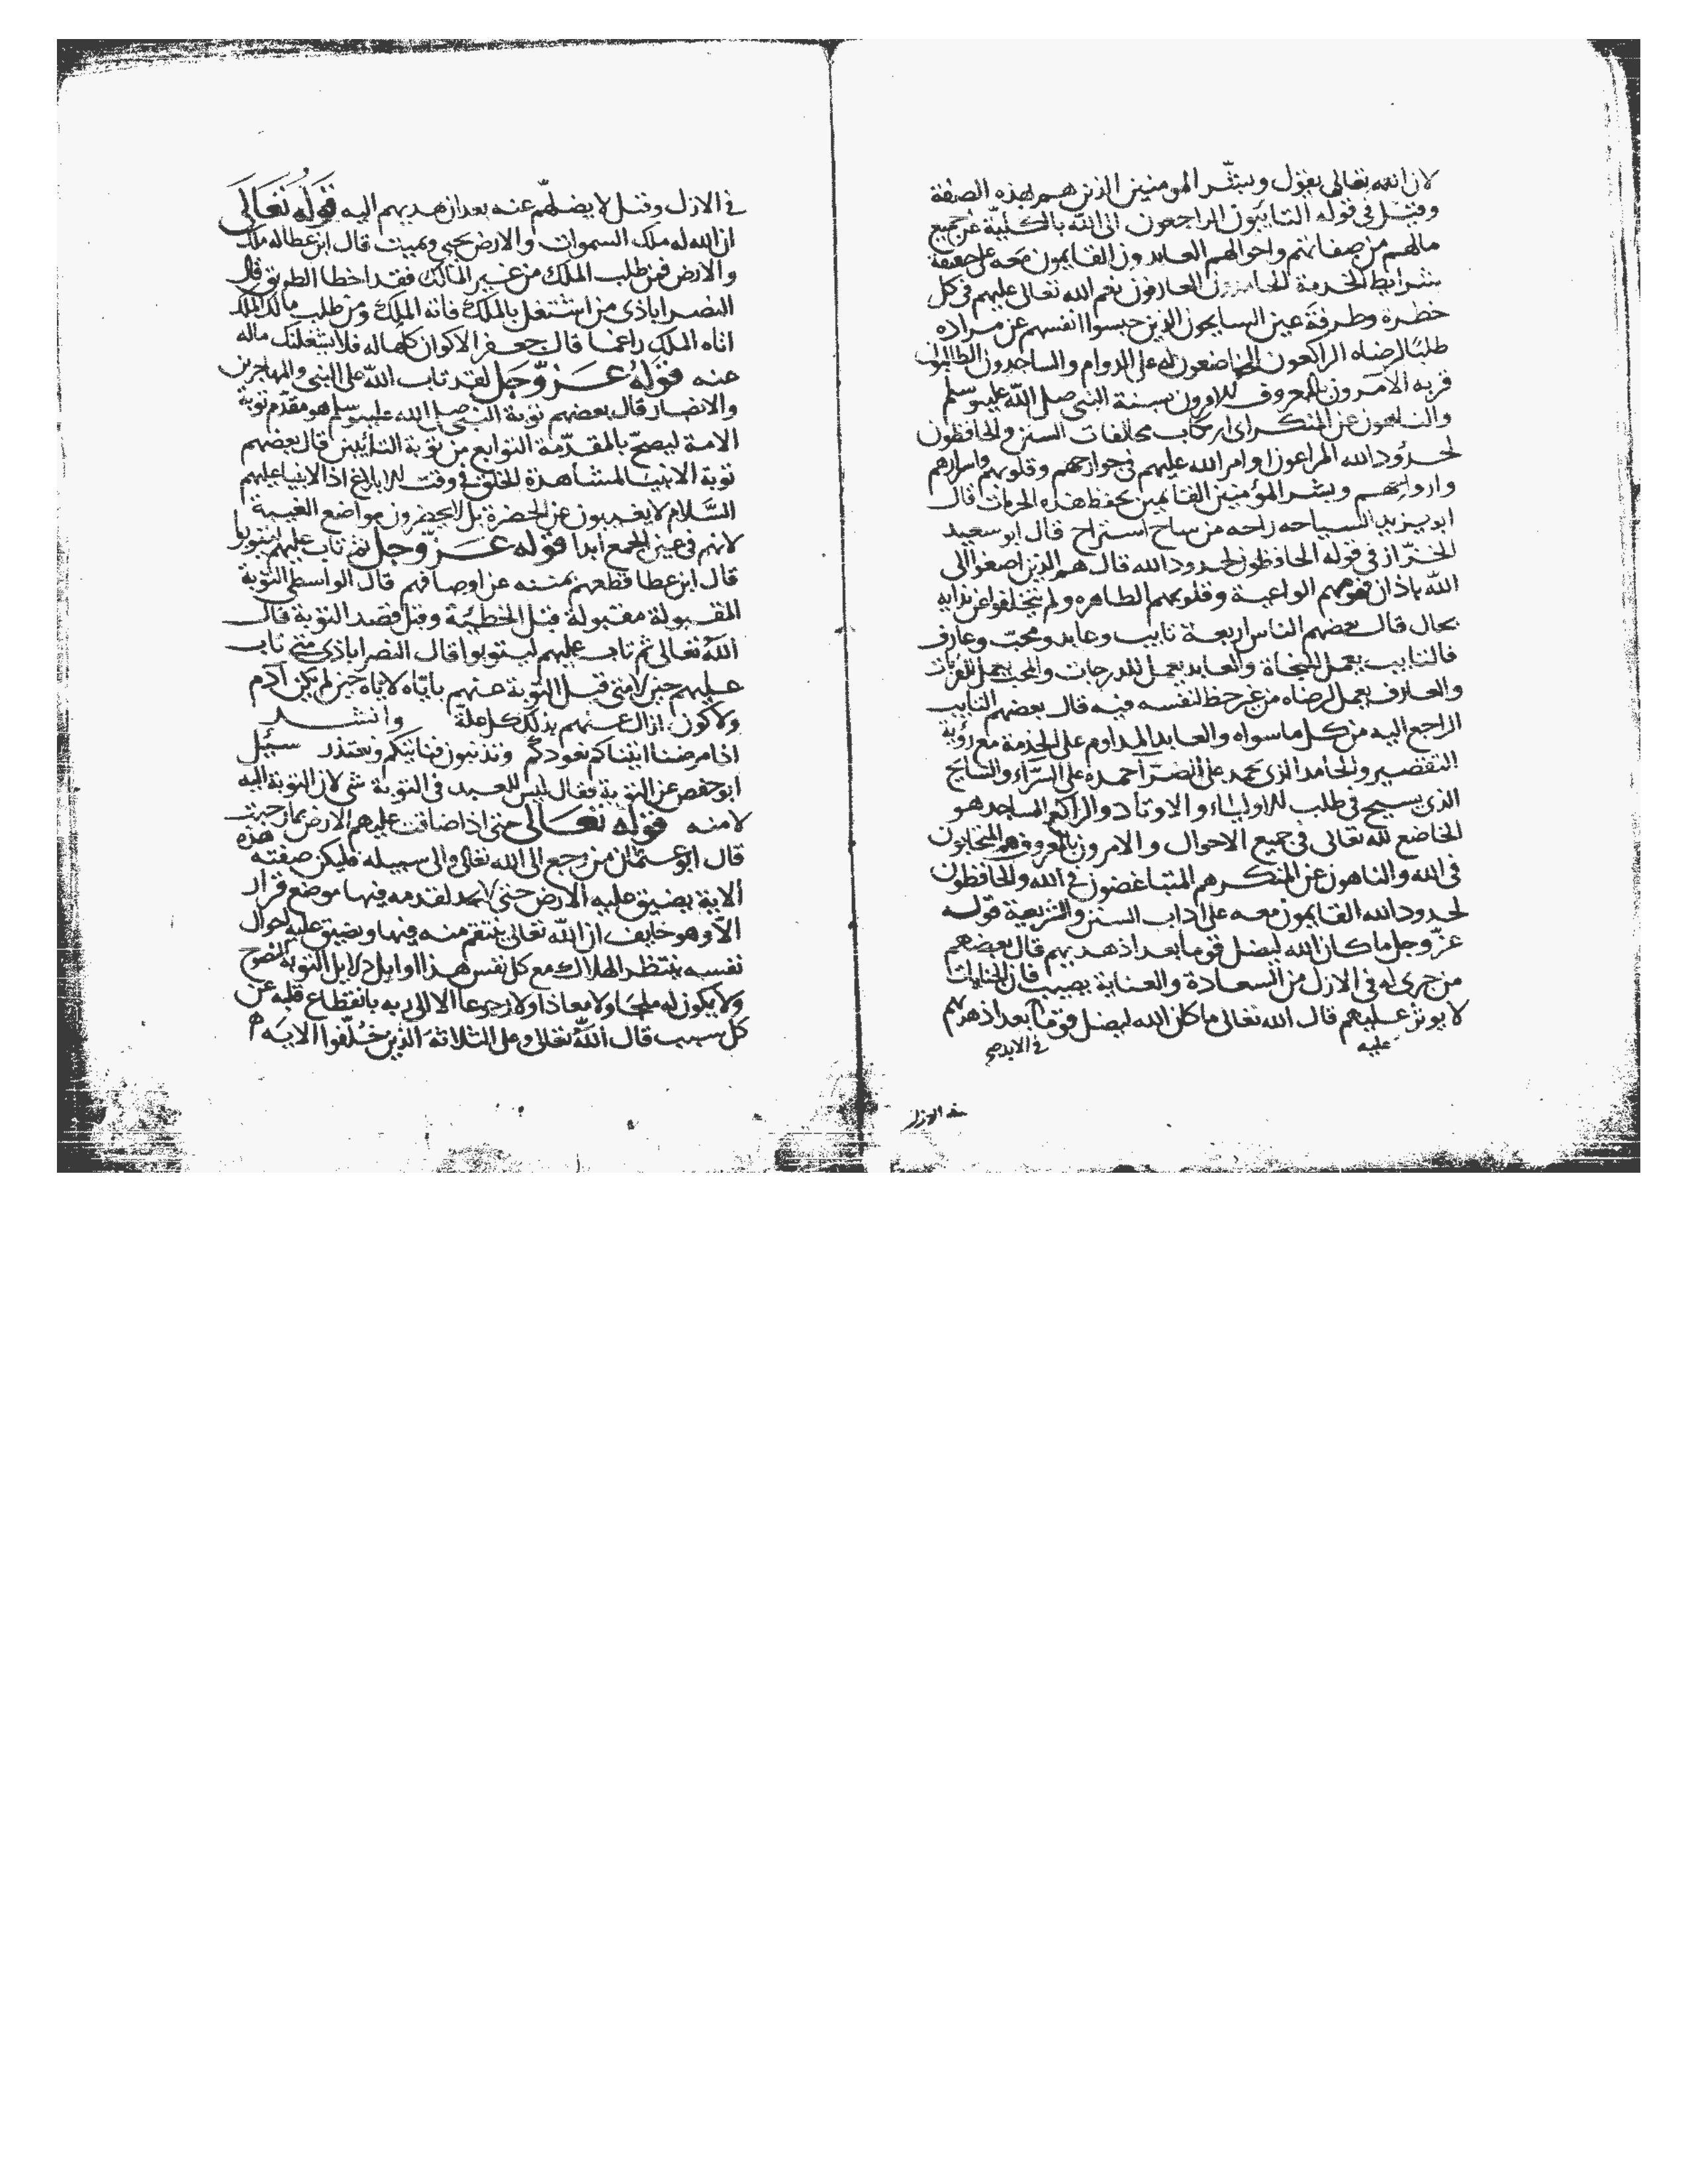 لان الله تعالى يقول وبشر المومنين الذين هم بهذه الصفة
وقيل في قوله التايبون الراجعون الى الله بالكلية عن جميع
مالهم من صفاتهم واحوالهم العابدون القايمون معه على حقيقة
شرايط الخدمة الحامدون العارفون نعم الله تعالى عليهم في كل
خطرة وطرفة عين السايحون الذين حبسوا انفسهم عن مراده
طلبا لرضاه الراكعون الخاضعون له على الدوام والساجدون الطالبون
قربه الآمرون بالمعروف الامرون بسنة النبي صلى الله عليه وسلم
والناهون عن المنكر اى ارتكاب مخالفات السنن والحافظون
لحدود الله المراعون اوامر الله عليهم في جوارحهم وقلوبهم واسرارهم
وارواحهم وبشر المؤمنين القايمين بحفظ هذه الحرمات قال
ابو يزيد السياحه راحه من ساح استراح قال ابو سعيد
الخراز في قوله الحافظون لحدود الله قال هم الذين اصغوا الى
الله باذان فهومهم الواعية وقلوبهم الطاهره ولم يتخلفوا عن ندايه
بحال قال بعضهم الناس اربعة تايب وعابد ومحب وعارف
فالتايب يعمل للنجاة والعابد يعمل للدرجات والمحب يعمل للقربات
والعارف يعمل لرضاه من غير حظ لنفسه فيه قال بعضهم التايب
الراجع اليه من كل ما سواه والعابد المداوم على الخدمة مع رؤية
التقصير والحامد الذى يحمد على الضرآ حمده على السرآء والسايح
الذى يسيح في طلب الاولياء والاوتاد والراكع الساجد هو
الخاضع لله تعالى في جميع الاحوال والامرون بالمعروف هم المتحابون
في الله والناهون عن المنكر هم المتباغضون في الله والحافظون
لحدود الله القايمون معه على اداب السنن والشريعة قوله
عز وجل ما كان الله ليضل قوما بعد اذ هديهم قال بعضهم
من جرى له في الازل من السعادة والعناية نصيب فان الجنايات
لا يوثر عليهم قال الله تعالى ما كان الله ليضل قوما بعد اذ هديهم
عليه في الابد
في الازل وقيل لا يضلهم عنه بعد ان هديهم اليه قوله تعالى
ان الله له ملك السموات والارض يحيي ويميت قال ابن عطا له ملك
والارض فمن طلب الملك من غير المالك فقد اخطا الطريق قال
النصراباذى من اشتغل بالملك فاته الملك ومن طلب مالك الملك
اتاه الملك راغما قال جعفر الاكوان كلها له فلا يشغلنك ماله
عنه قوله عز وجل لقد تاب الله على النبي والمهاجرين
والانصار قال بعضهم توبة النبي صلى الله عليه وسلم هو مقدم توبة
الامة ليصح بالمقدمة التوابع من توبة التائبين قال بعضهم
توبة الانبيا لمشاهدة الخلق في وقت الابلاغ اذ الانبيا عليهم
السلام لا يغيبون عن الحضرة بل لا يحضرون مواضع الغيبة
لانهم في عين الجمع ابدا قوله عز وجل ثم تاب عليهم ليتوبوا
قال ابن عطا قطعهم بمننه عن اوصافهم قال الواسطى التوبة
المقبولة مقبولة قبل الخطيئة وقبل قصد التوبة قال
الله تعالى ثم تاب عليهم ليتوبوا قال النصراباذى متى تاب
عليهم حين لا متى قبل التوبة عنهم باياه لاياه حين لم يكن آدم
ولا كون ازال عنهم بذلك كل علة وانشد
اذا مرضنا اتيناكم نعودكم وتذنبون فنايتكم ونعتذر سئيل
ابو حفص عن التوبة فقال ليس للعبد في التوبة شى لان التوبة اليه
لا منه قوله تعالى حتى اذا ضاقت عليهم الارض بما رحبت
قال ابو عثمان من رجع الى الله تعالى والى سبيله فليكن صفته هذه
الاية يضيق عليه الارض حتى لا يجد لقدمه فيها موضع قرار
الا وهو خايف ان الله تعالى ينتقم منه فيها ويضيق عليه احوال
نفسه ينتظر الهلاك مع كل نفس هذا اوايل دلايل التوبة النصوح
ولا يكون له ملجا ولا معاذا ولا رجوعا الا الى ربه بانقطاع قلبه عن
كل سبب قال الله تعالى وعلى الثلاثة الذين خلفوا الايه